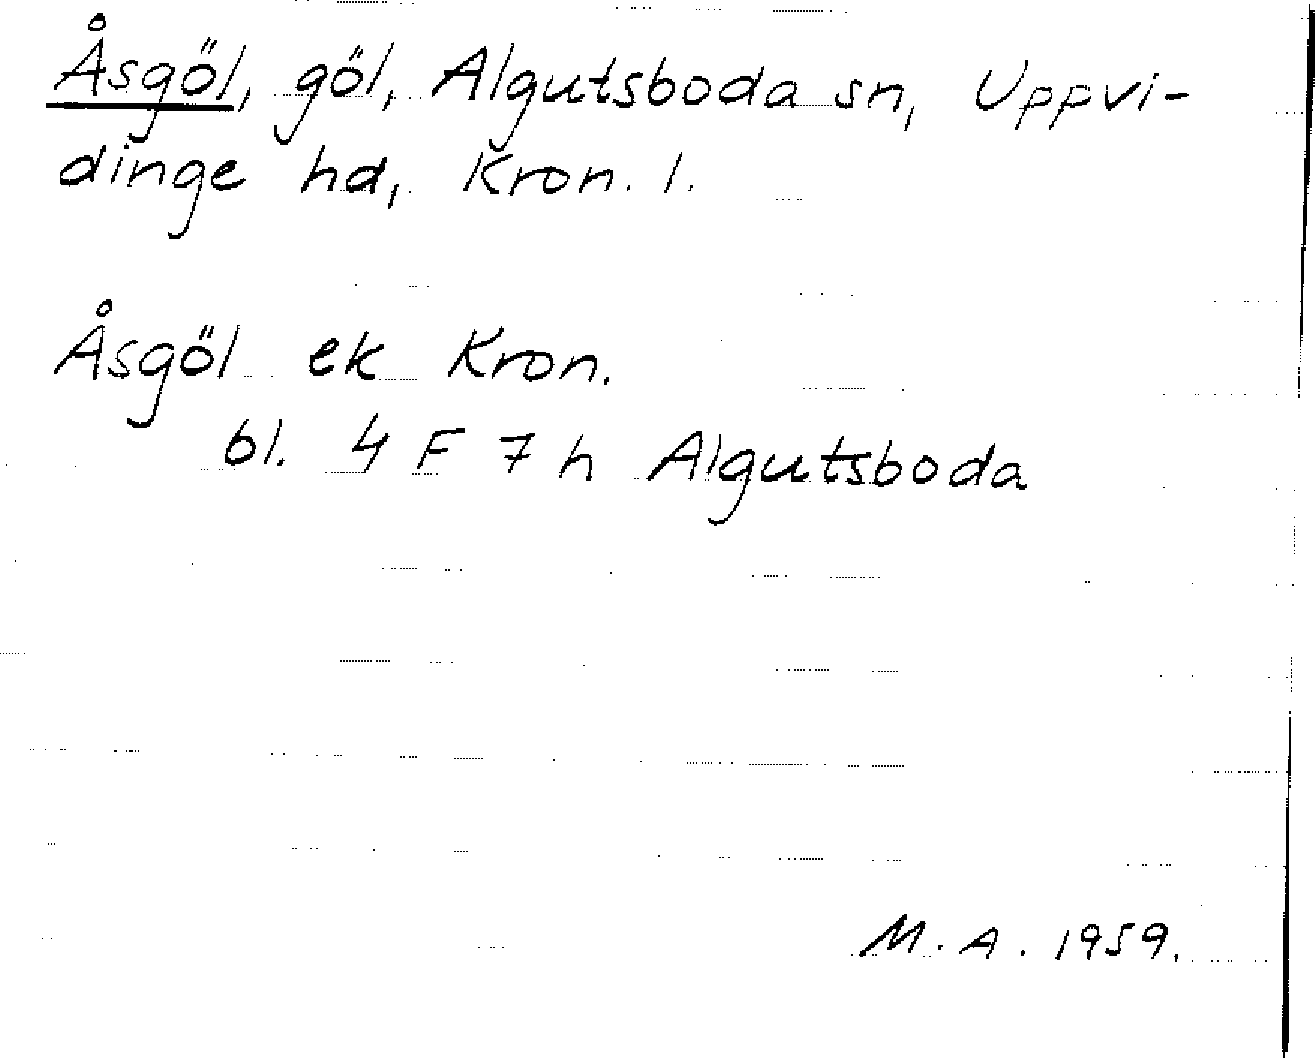 Åsgöl, göl, Algutsboda sn, Uppvi-
dinge hd, Kron. l.
Åsgöl ek Kron.
bl. 4 F 7 h Algutsboda
M. A. 1959.